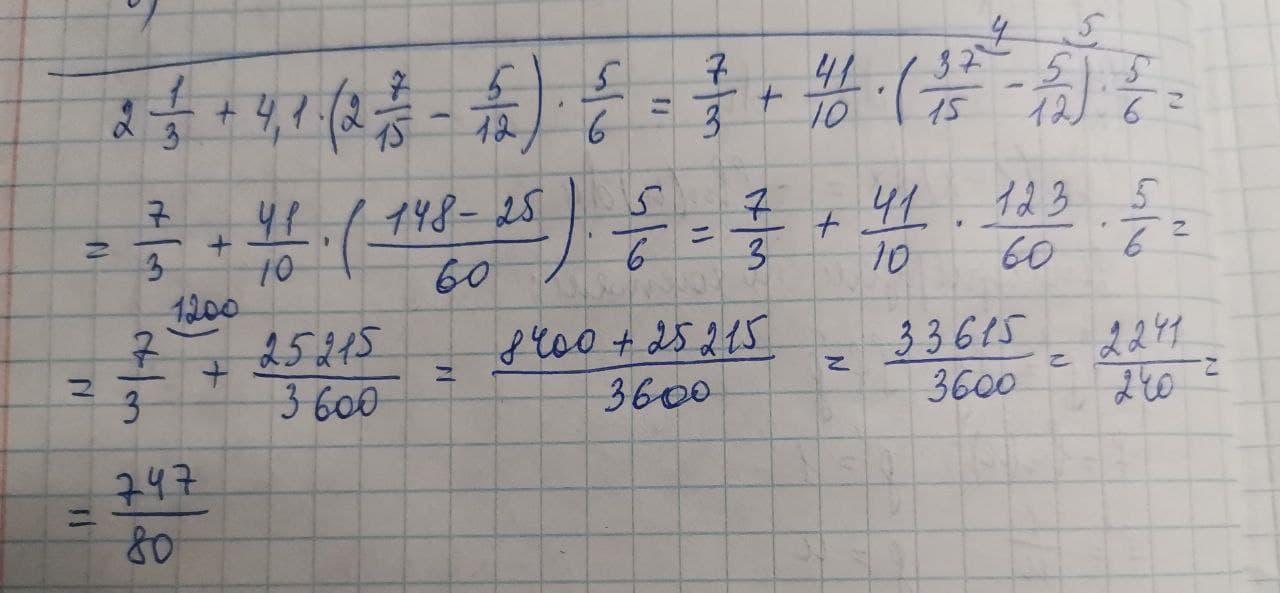 2 1/3 + 4,1 · (2 7/15 − 5/12) · 5/6 = 7/3 + 41/10 · (37/15 ⁴ − 5/12 ⁵) · 5/6 =
= 7/3 + 41/10 · ((148 − 25)/60) · 5/6 = 7/3 + 41/10 · 123/60 · 5/6 =
= 7/3 ¹²⁰⁰ + 25215/3600 = (8400 + 25215)/3600 = 33615/3600 = 2241/240 =
= 747/80